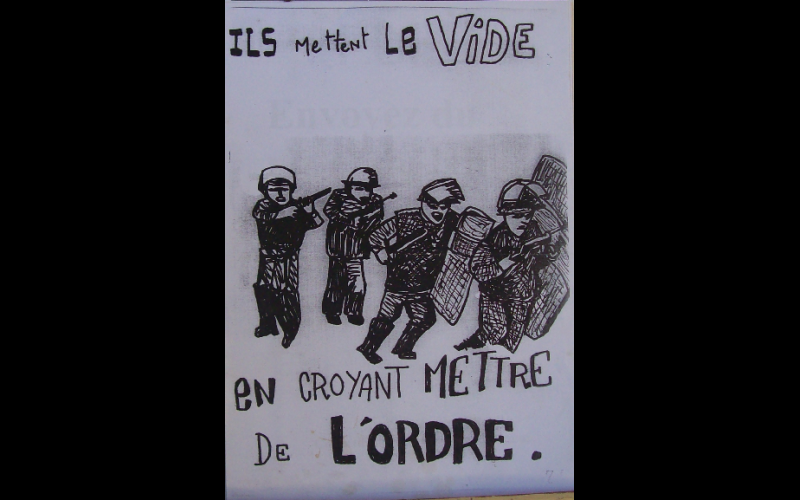 ILS mettent LE ViDE
en CROYANT METTRE
DE L'ORDRE.